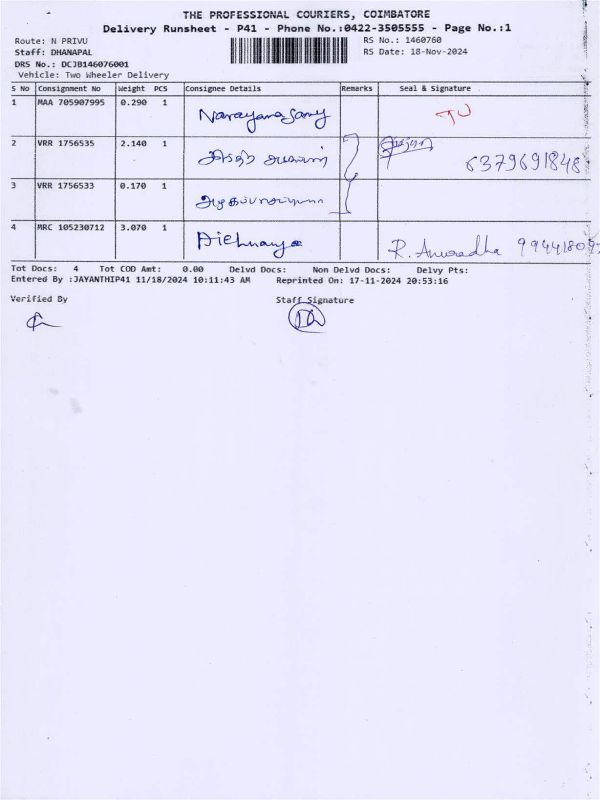 THE PROFESSIONAL COURIERS, COIMBATORE
Delivery Runsheet - P41 - Phone No.:0422-3505555 - Page No.:1
Route: N PRIVU RS No.: 1460760
Staff: DHANAPAL RS Date: 18-Nov-2024
DRS No.: DCJB146076001
Vehicle: Two Wheeler Delivery
S No Consignment No Weight PCS Consignee Details Remarks Seal & Signature
1 MAA 705907995 0.290 1 Narayanasamy
2 VRR 1756535 2.140 1 6379691848
3 VRR 1756533 0.170 1
4 MRC 105230712 3.070 1 R. Anuradha
Tot Docs: 4 Tot COD Amt: 0.00 Delvd Docs: Non Delvd Docs: Delvy Pts:
Entered By :JAYANTHIP41 11/18/2024 10:11:43 AM Reprinted On: 17-11-2024 20:53:16
Verified By Staff Signature